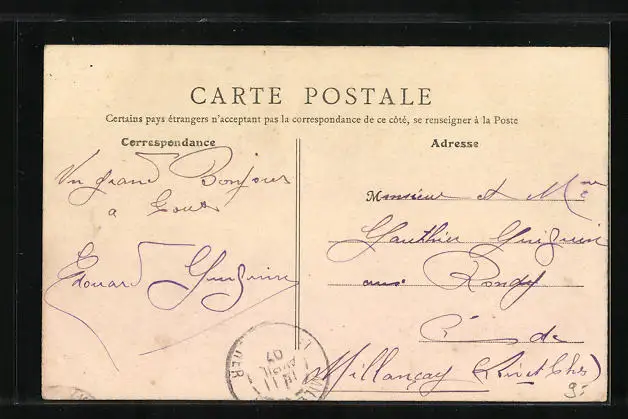 CARTE POSTALE
Certains pays étrangers n'acceptant pas la correspondance de ce côté, se renseigner à la Poste
Correspondance
Adresse
Un grand Bonjour
a Tous
Edouard Guiguin
Monsieur et Mme
Gauthier Guiguin
aux Rondy
Cne de
Millançay (Loir et Cher)
AVRIL
07
CHER